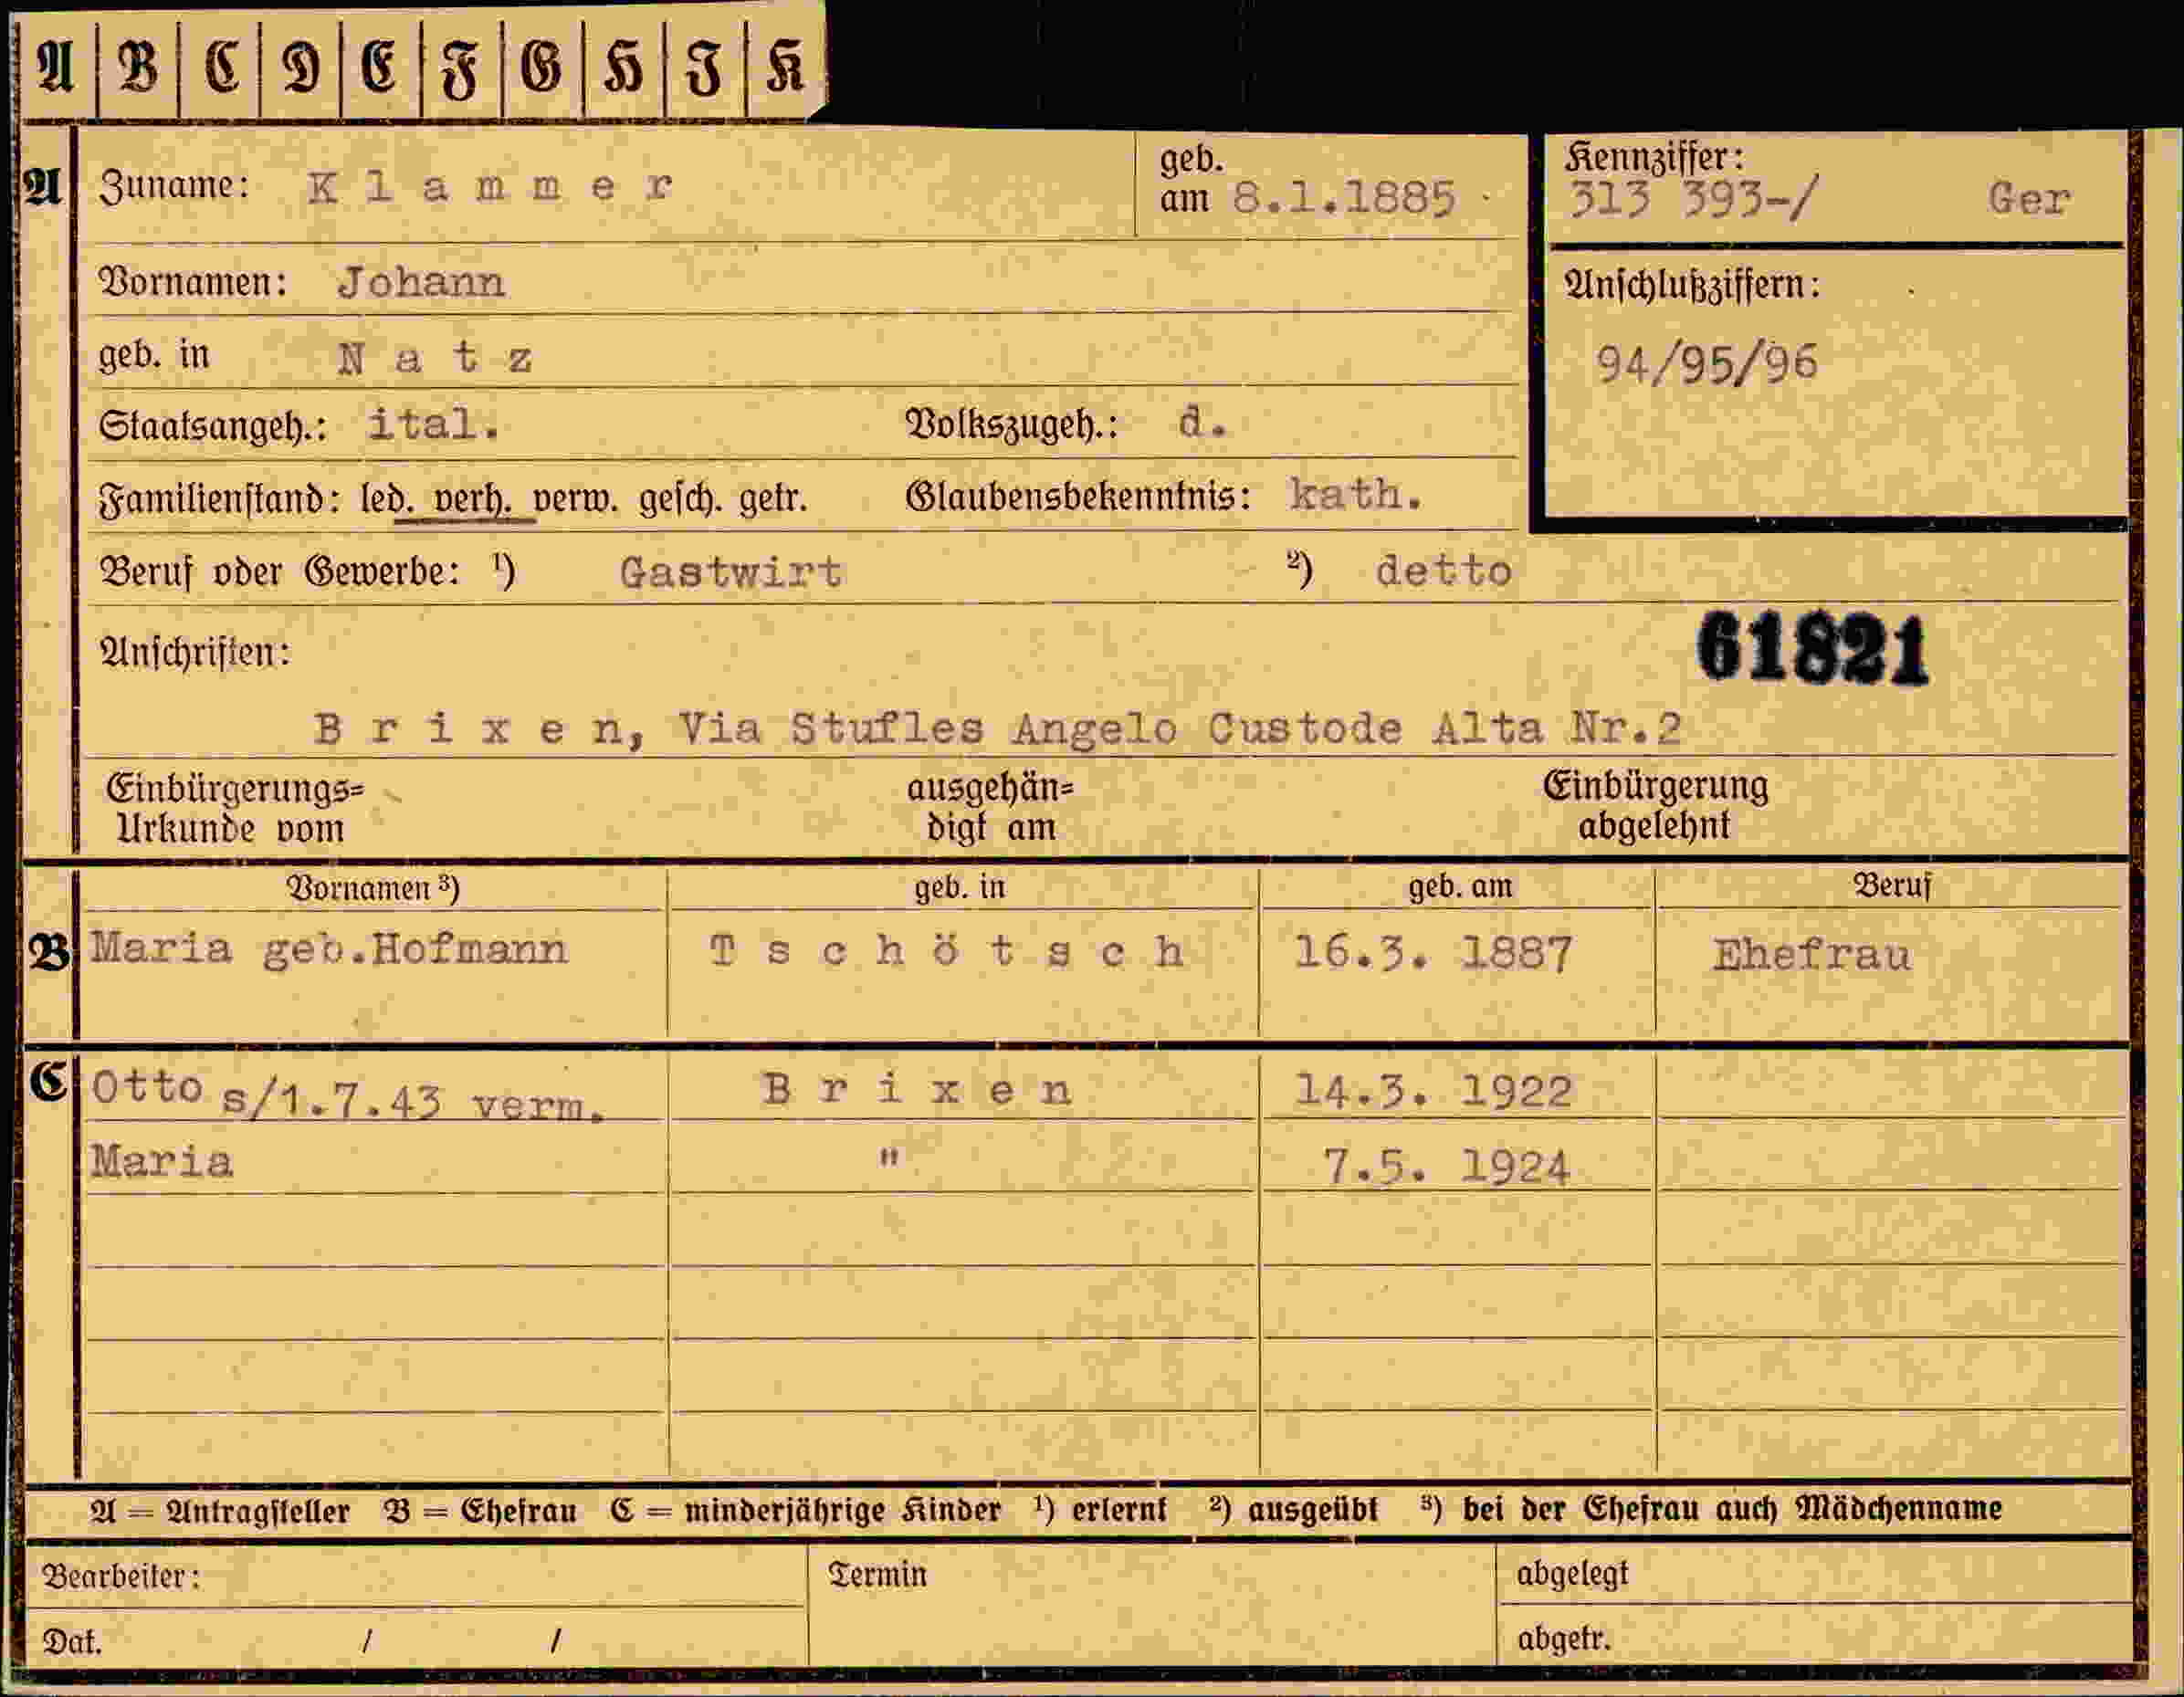 A B C D E F G H J K
A Zuname: Klammer geb. am 8.1.1885
Kennziffer: 313 393-/ Ger
Vornamen: Johann
Anschlußziffern:
94/95/96
geb. in Natz
Staatsangeh.: ital. Volkszugeh.: d.
Familienstand: led. verh. verw. gesch. getr. Glaubensbekenntnis: kath.
Beruf oder Gewerbe: ¹) Gastwirt ²) detto
Anschriften:
61821
Brixen, Via Stufles Angelo Custode Alta Nr.2
Einbürgerungs= ausgehän= Einbürgerung
Urkunde vom digt am abgelehnt
Vornamen ³) geb. in geb. am Beruf
B Maria geb.Hofmann Tschötsch 16.3. 1887 Ehefrau
C Otto s/1.7.43 verm. Brixen 14.3. 1922
Maria " 7.5. 1924
A = Antragsteller B = Ehefrau C = minderjährige Kinder ¹) erlernt ²) ausgeübt ³) bei der Ehefrau auch Mädchenname
Bearbeiter: Termin abgelegt
Dat. / / abgetr.